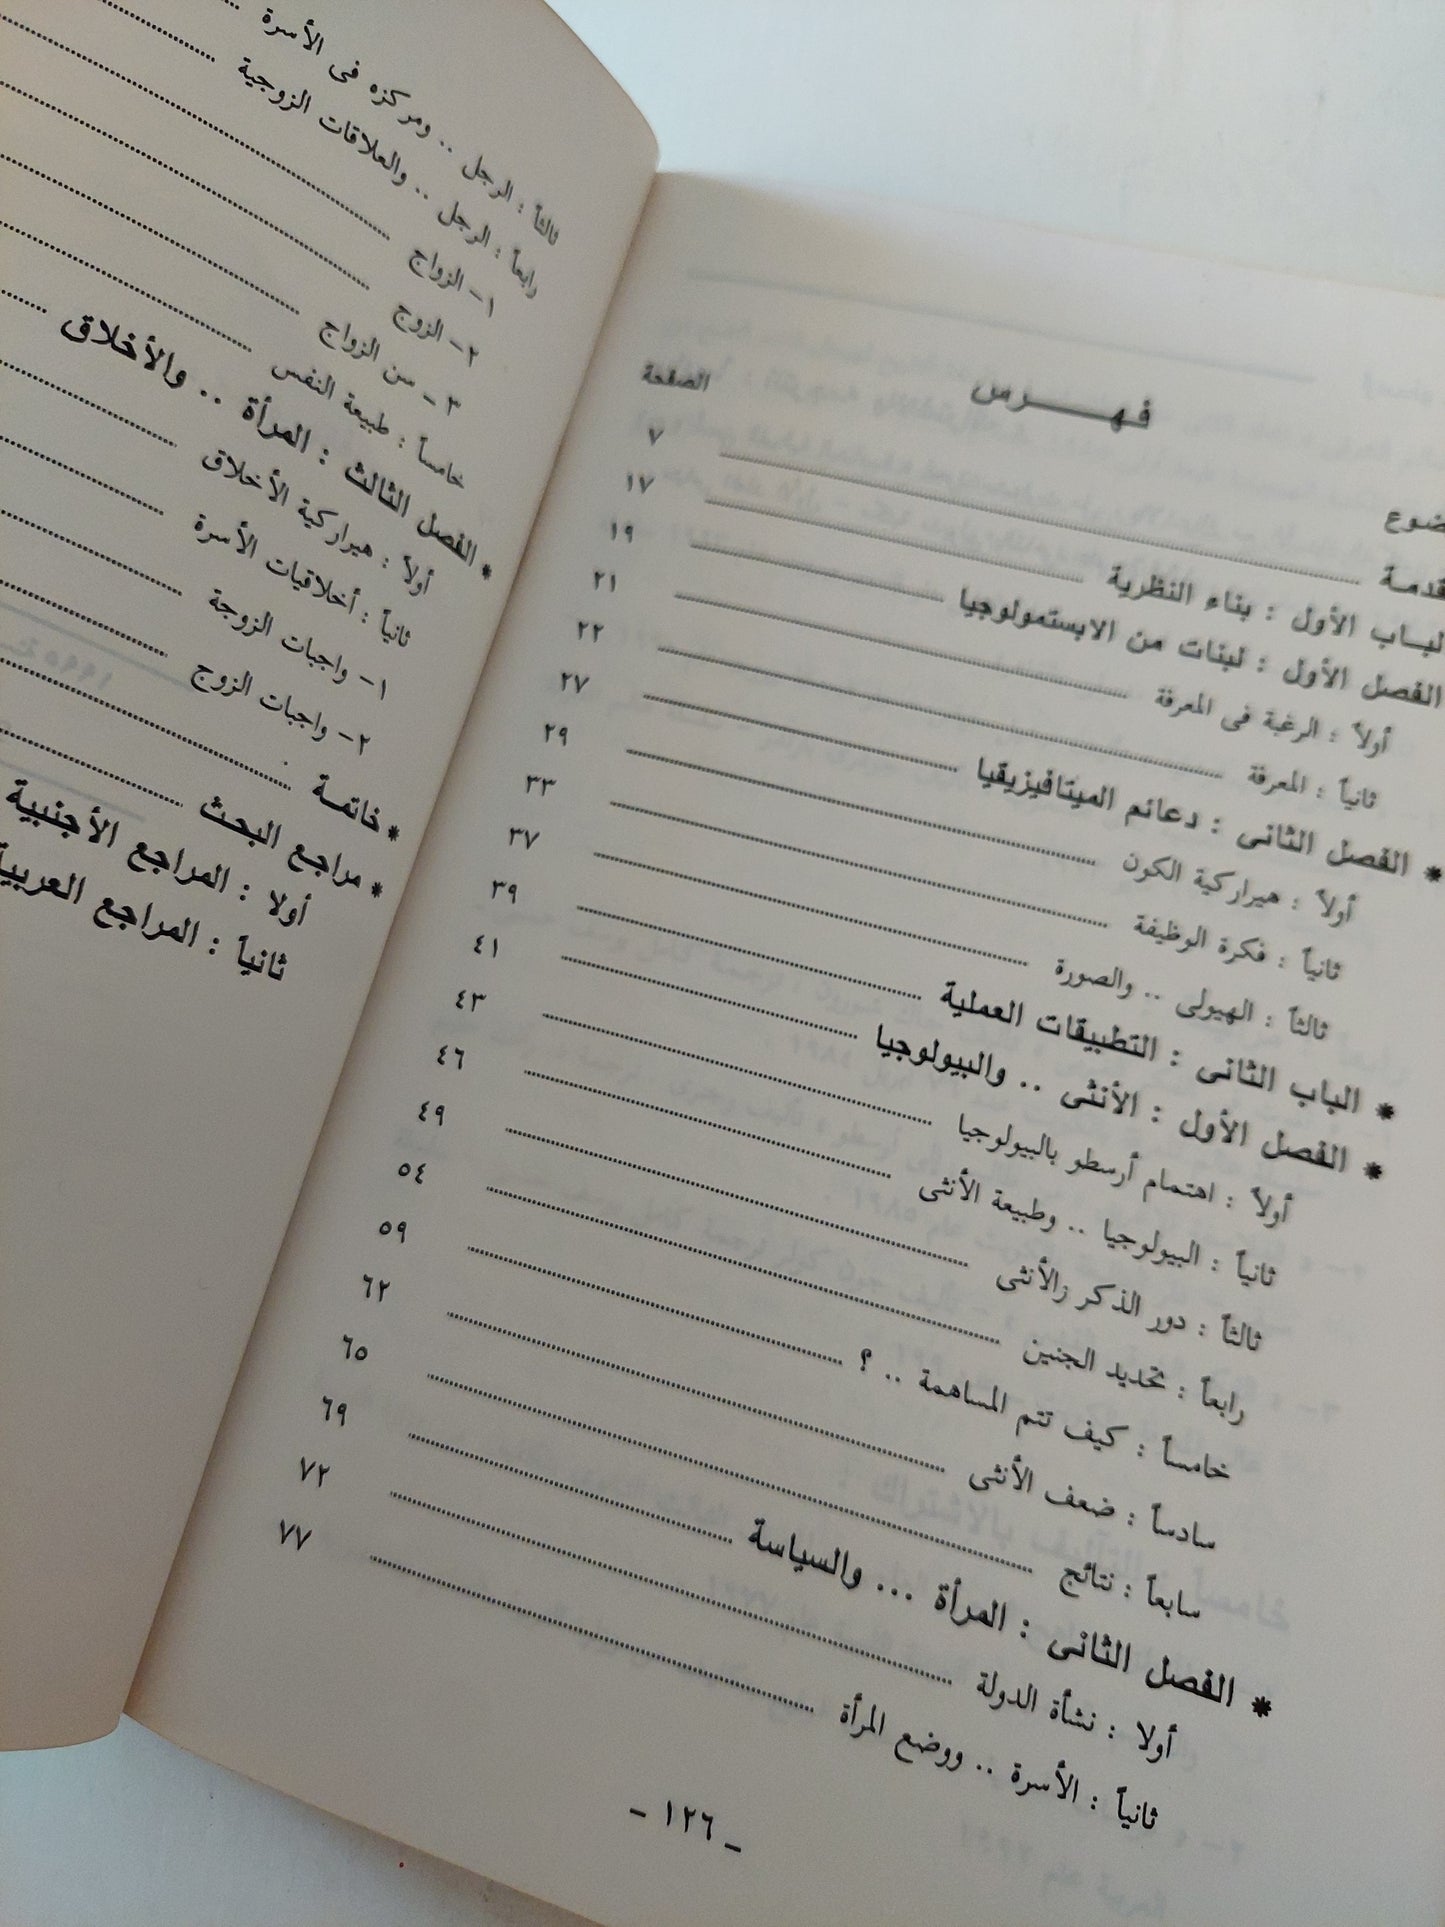 فهـــرس
الصفحة
ضوع
قدمـة ٧
لبـاب الأول : بناء النظرية ١٧
الفصل الأول : لبنات من الابستمولوجيا ١٩
أولاً : الرغبة فى المعرفة ٢١
ثانياً : المعرفة ٢٢
* الفصل الثانى : دعائم الميتافيزيقيا ٢٧
أولاً : هيراركية الكون ٢٩
ثانياً : فكرة الوظيفة ٣٣
ثالثاً : الهيولى .. والصورة ٣٧
* الباب الثانى : التطبيقات العملية ٣٩
* الفصل الأول : الأنثى .. والبيولوجيا ٤١
أولاً : اهتمام أرسطو بالبيولوجيا ٤٣
ثانياً : البيولوجيا .. وطبيعة الأنثى ٤٦
ثالثاً : دور الذكر والأنثى ٤٩
رابعاً : تحديد الجنين ٥٤
خامساً : كيف تتم المساهمة .. ؟ ٥٩
سادساً : ضعف الأنثى ٦٢
سابعاً : نتائج ٦٥
* الفصل الثانى : المرأة ... والسياسة ٦٩
أولا : نشأة الدولة ٧٢
ثانياً : الأسرة .. ووضع المرأة ٧٧
- ١٢٦ -
ثالثاً : الرجل .. ومركزه فى الأسرة
رابعاً : الرجل .. والعلاقات الزوجية
١- الزواج
٢- الزوج
٣ - سن الزواج
خامساً : طبيعة النفس
* الفصل الثالث : المرأة .. والأخلاق
أولاً : هيراركية الأخلاق
ثانياً : أخلاقيات الأسرة
١- واجبات الزوجة
٢- واجبات الزوج
* خاتمـة
* مراجع البحث
أولا : المراجع الأجنبية
ثانياً : المراجع العربية